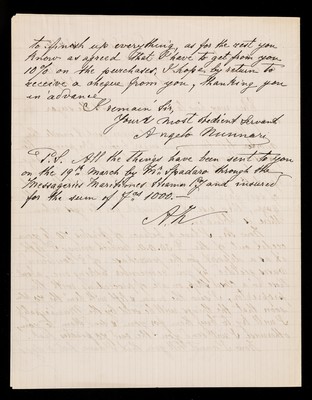 to finish up everything, as for the rest you
know as agreed that I have to get from you
10% on the purchases. I hope, by return to
receive a cheque from you, thanking you
in advance,
I remain Sir,
Your's most obedient Servant
Angelo Nunnari
P.S. All the things have been sent to you
on the 19th March by Mr Spadaro through the
Messageries Maritimes Steam Co/ and insured
for the sum of 1000.—